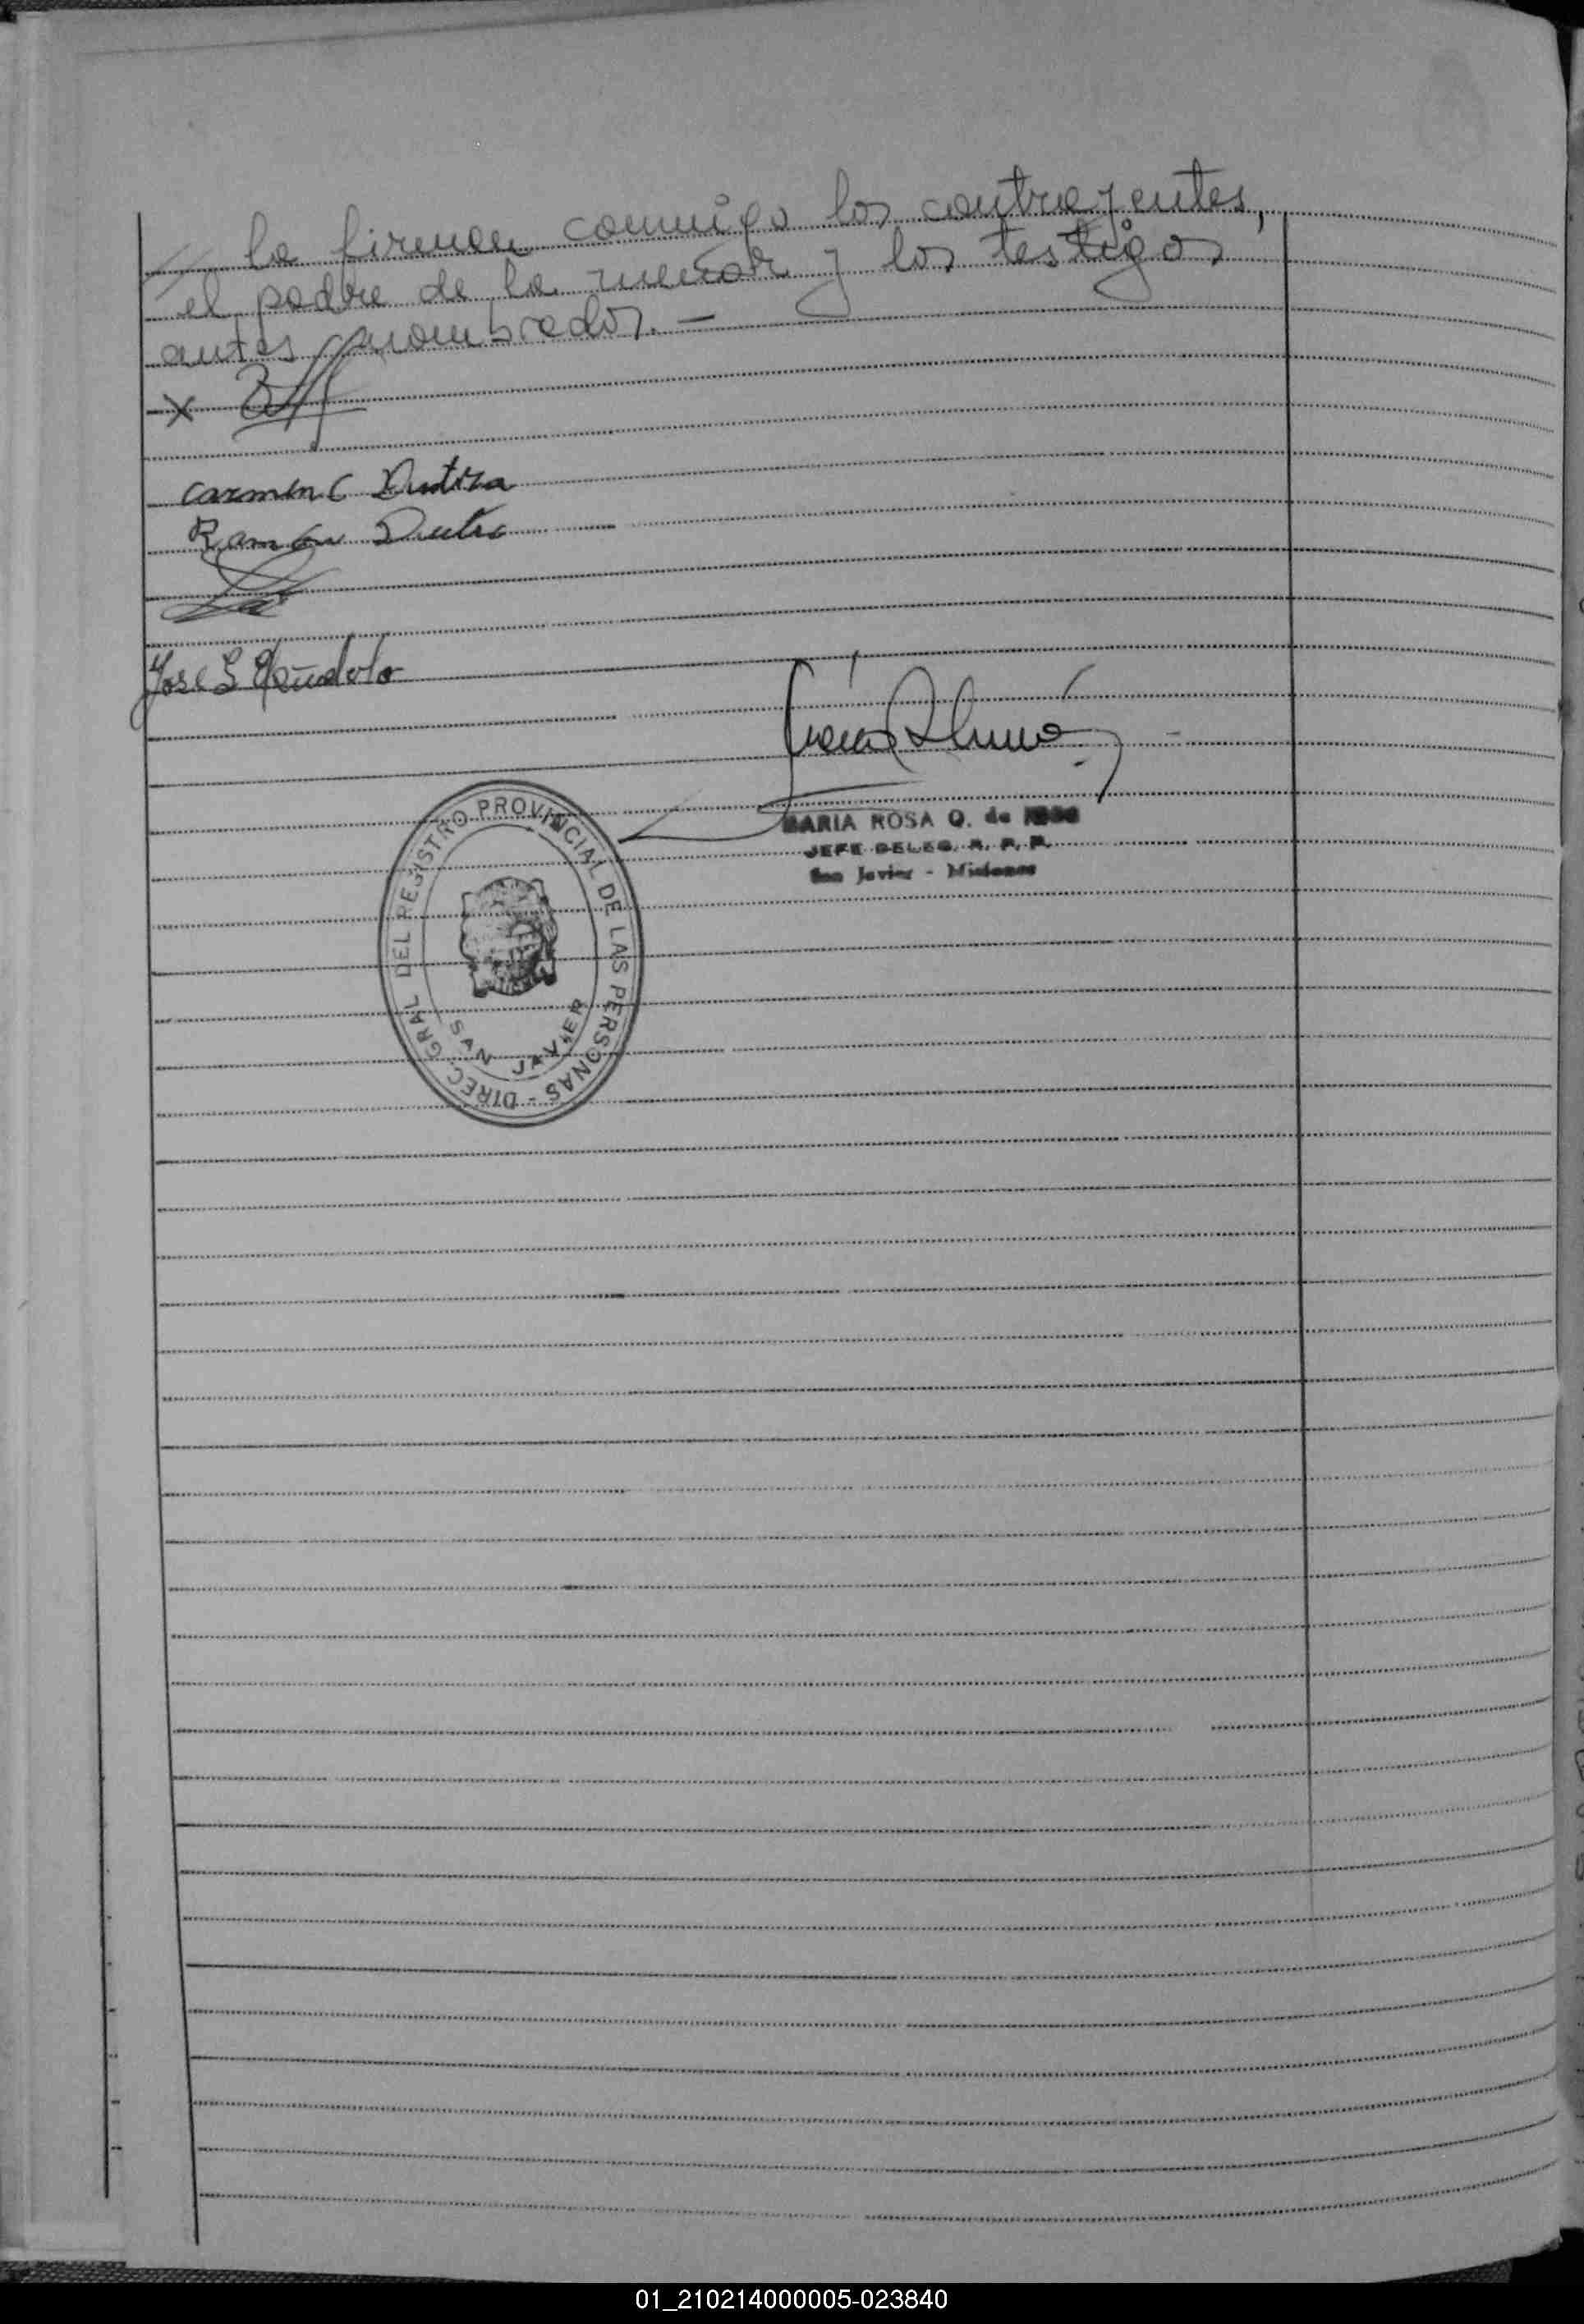 // la firman conmigo los contrayentes,
el padre de la menor y los testigos
antes nombrados. —
X
Carmen C Dutra
Ramón Dutra
Jose L
MARIA ROSA Q. de
JEFE DELEG. R. P. P.
San Javier - Misiones
DIREC. GRAL DEL REGISTRO PROVINCIAL DE LAS PERSONAS -
SAN JAVIER
01_210214000005-023840